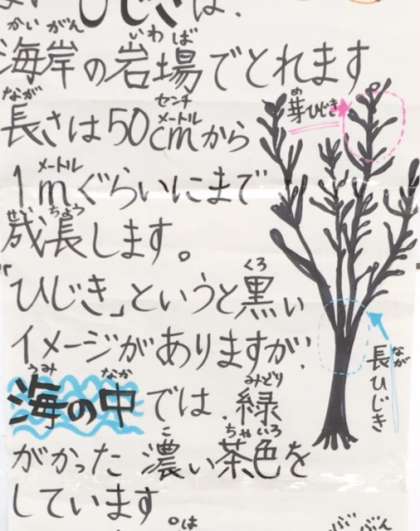 ひじきは、
海岸の岩場でとれます
長さは50cmから
1mぐらいにまで
成長します。
ひじき」というと黒い
イメージがありますが、
海の中では、緑
がかった濃い茶色を
しています
芽ひじき
長ひじき